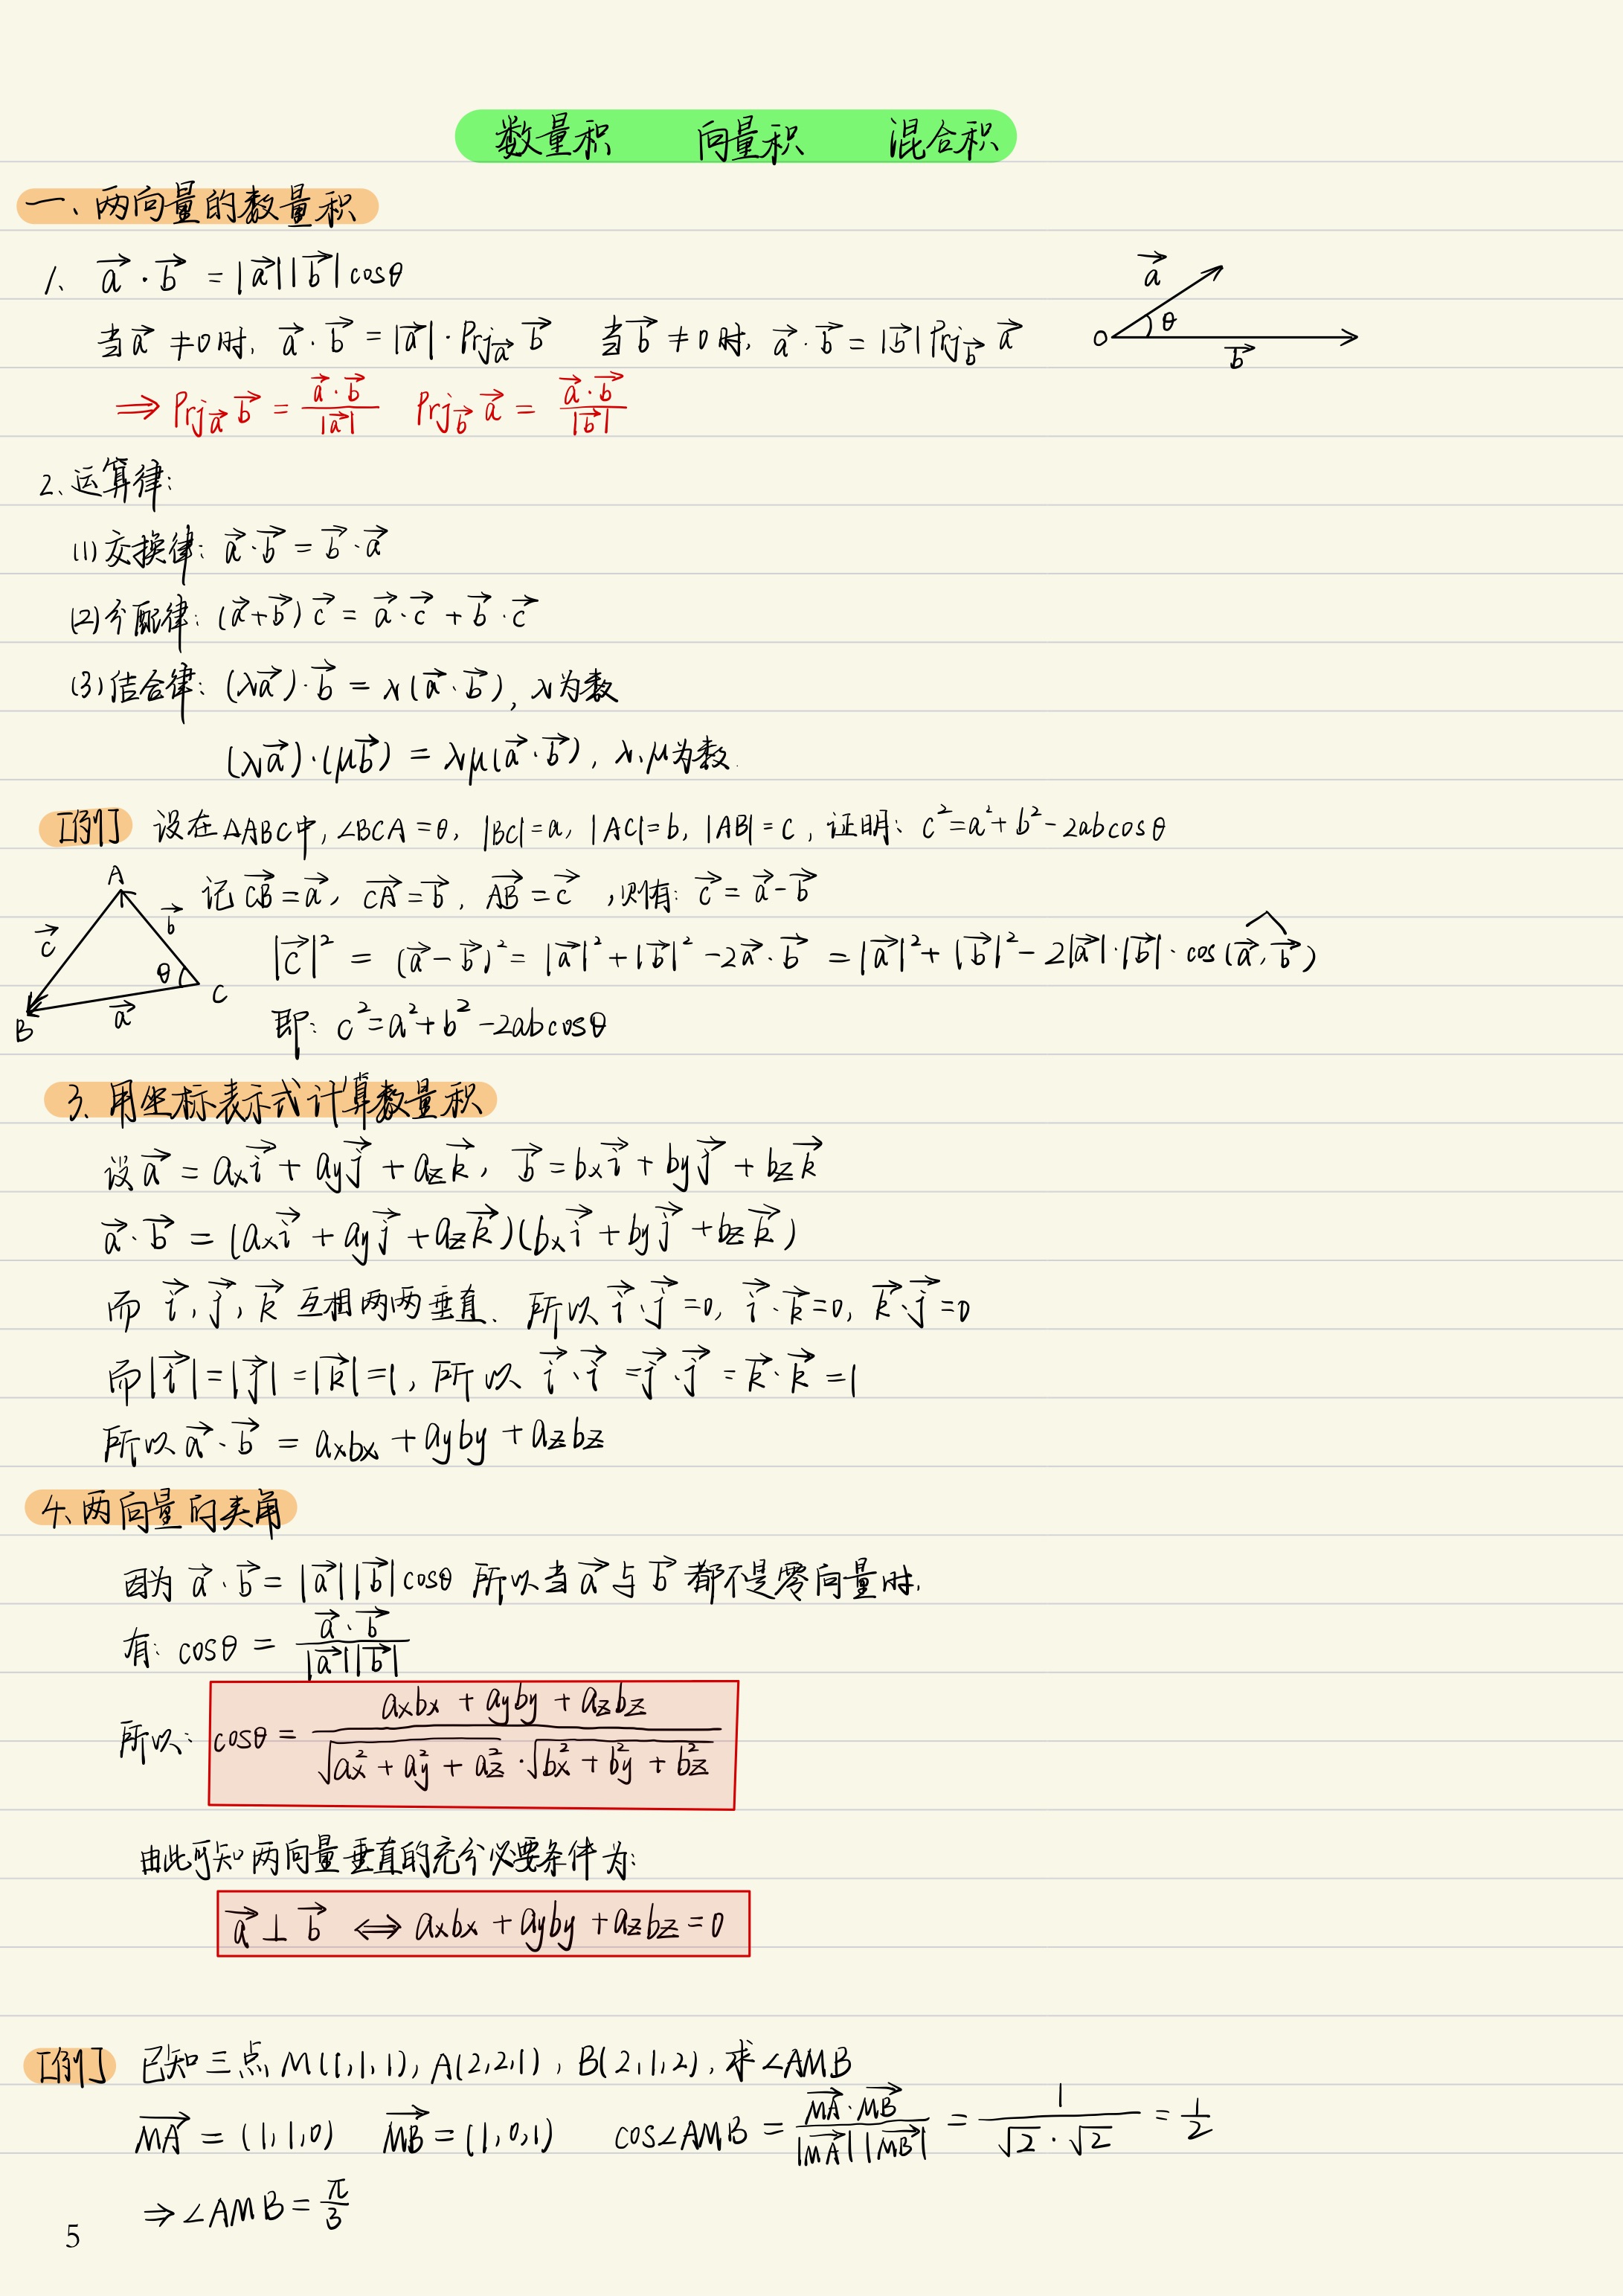 数量积 向量积 混合积
一、两向量的数量积
1、 $\vec{a}\cdot\vec{b}=|\vec{a}||\vec{b}|\cos\theta$
当$\vec{a}\neq 0$时, $\vec{a}\cdot\vec{b}=|\vec{a}|\cdot Prj_{\vec{a}}\vec{b}$ 当$\vec{b}\neq 0$时, $\vec{a}\cdot\vec{b}=|\vec{b}|Prj_{\vec{b}}\vec{a}$
$\vec{a}$
O θ
$\vec{b}$
$\Rightarrow Prj_{\vec{a}}\vec{b}=\frac{\vec{a}\cdot\vec{b}}{|\vec{a}|}$ $Prj_{\vec{b}}\vec{a}=\frac{\vec{a}\cdot\vec{b}}{|\vec{b}|}$
2、运算律:
(1)交换律: $\vec{a}\cdot\vec{b}=\vec{b}\cdot\vec{a}$
(2)分配律: $(\vec{a}+\vec{b})\vec{c}=\vec{a}\cdot\vec{c}+\vec{b}\cdot\vec{c}$
(3)结合律: $(\lambda\vec{a})\cdot\vec{b}=\lambda(\vec{a}\cdot\vec{b})$, λ为数
$(\lambda\vec{a})\cdot(\mu\vec{b})=\lambda\mu(\vec{a}\cdot\vec{b})$, λ、μ为数.
[例] 设在△ABC中, ∠BCA=θ, |BC|=a, |AC|=b, |AB|=c, 证明: $c^2=a^2+b^2-2ab\cos\theta$
记 $\vec{CB}=\vec{a}$, $\vec{CA}=\vec{b}$, $\vec{AB}=\vec{c}$, 则有: $\vec{c}=\vec{a}-\vec{b}$
A
$\vec{c}$ $\vec{b}$
θ C
B $\vec{a}$
$|\vec{c}|^2=(\vec{a}-\vec{b})^2=|\vec{a}|^2+|\vec{b}|^2-2\vec{a}\cdot\vec{b}=|\vec{a}|^2+|\vec{b}|^2-2|\vec{a}|\cdot|\vec{b}|\cdot\cos(\widehat{\vec{a},\vec{b}})$
即: $c^2=a^2+b^2-2ab\cos\theta$
3、用坐标表示式计算数量积
设$\vec{a}=a_x\vec{i}+a_y\vec{j}+a_z\vec{k}$, $\vec{b}=b_x\vec{i}+b_y\vec{j}+b_z\vec{k}$
$\vec{a}\cdot\vec{b}=(a_x\vec{i}+a_y\vec{j}+a_z\vec{k})(b_x\vec{i}+b_y\vec{j}+b_z\vec{k})$
而 $\vec{i},\vec{j},\vec{k}$ 互相两两垂直、所以 $\vec{i}\cdot\vec{j}=0$, $\vec{i}\cdot\vec{k}=0$, $\vec{k}\cdot\vec{j}=0$
而$|\vec{i}|=|\vec{j}|=|\vec{k}|=1$, 所以 $\vec{i}\cdot\vec{i}=\vec{j}\cdot\vec{j}=\vec{k}\cdot\vec{k}=1$
所以$\vec{a}\cdot\vec{b}=a_xb_x+a_yb_y+a_zb_z$
4、两向量的夹角
因为 $\vec{a}\cdot\vec{b}=|\vec{a}||\vec{b}|\cos\theta$ 所以当$\vec{a}$与$\vec{b}$都不是零向量时,
有: $\cos\theta=\frac{\vec{a}\cdot\vec{b}}{|\vec{a}||\vec{b}|}$
所以: $\cos\theta=\frac{a_xb_x+a_yb_y+a_zb_z}{\sqrt{a_x^2+a_y^2+a_z^2}\cdot\sqrt{b_x^2+b_y^2+b_z^2}}$
由此可知两向量垂直的充分必要条件为:
$\vec{a}\perp\vec{b}\Leftrightarrow a_xb_x+a_yb_y+a_zb_z=0$
[例] 已知三点M(1,1,1), A(2,2,1), B(2,1,2), 求∠AMB
$\vec{MA}=(1,1,0)$ $\vec{MB}=(1,0,1)$ $\cos\angle AMB=\frac{\vec{MA}\cdot\vec{MB}}{|\vec{MA}||\vec{MB}|}=\frac{1}{\sqrt{2}\cdot\sqrt{2}}=\frac{1}{2}$
$\Rightarrow\angle AMB=\frac{\pi}{3}$
5